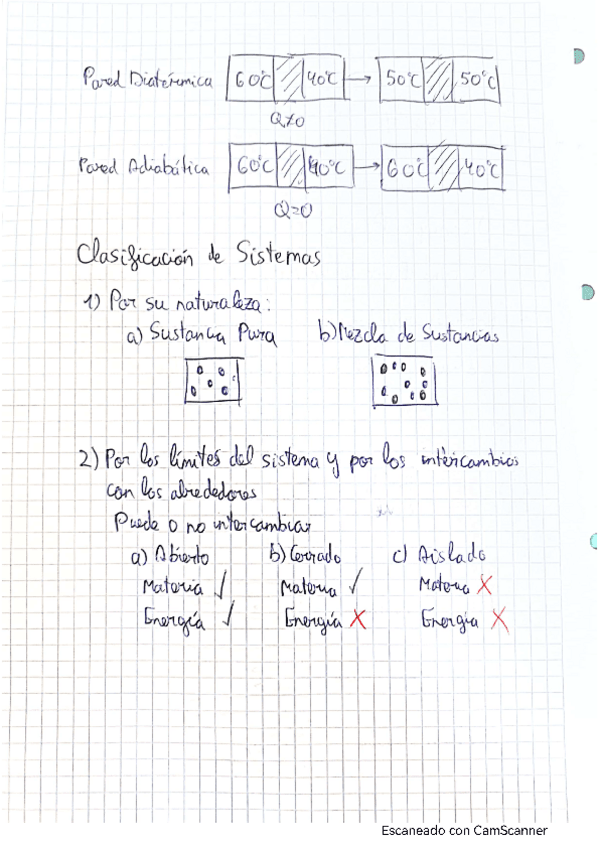 Pared Diatérmica 60°C 40°C → 50°C 50°C
Q≠0
Pared Adiabática 60°C 40°C → 60°C 40°C
Q=0
Clasificación de Sistemas
1) Por su naturaleza:
a) Sustancia Pura b) Mezcla de Sustancias
2) Por los límites del sistema y por los intercambios
con los alrededores
Puede o no intercambiar
a) Abierto b) Cerrado c) Aislado
Materia ✓ Materia ✓ Materia X
Energía ✓ Energía X Energía X
Escaneado con CamScanner